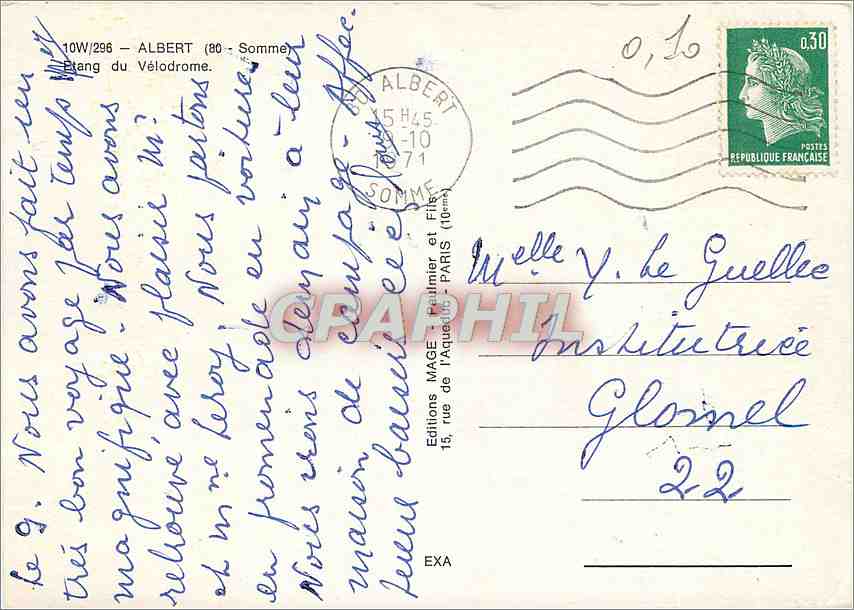 10W/296 — ALBERT (80 - Somme)
Etang du Vélodrome.
0,10
80 ALBERT
15 H 45
9-10
1971
SOMME
0,30
POSTES
REPUBLIQUE FRANÇAISE
Le 9. Nous avons fait un
très bon voyage par temps
magnifique - Nous avons
retrouvé avec plaisir Mr
et Mme Leroy. Nous partons
en promenade en voiture.
Nous irons demain à leur
maison de campagne - Affec-
tueux baisers
Editions MAGE - Paulmier et Fils
15, rue de l'Aqueduc - PARIS (10eme)
EXA
CPAPHIL
Melle Y. Le Guellec
Institutrice
Glomel
22